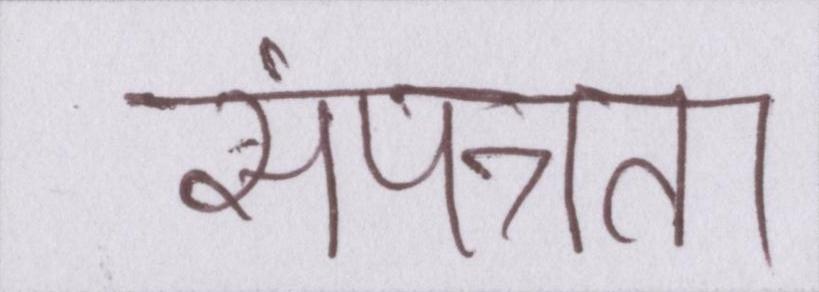 संपन्नता